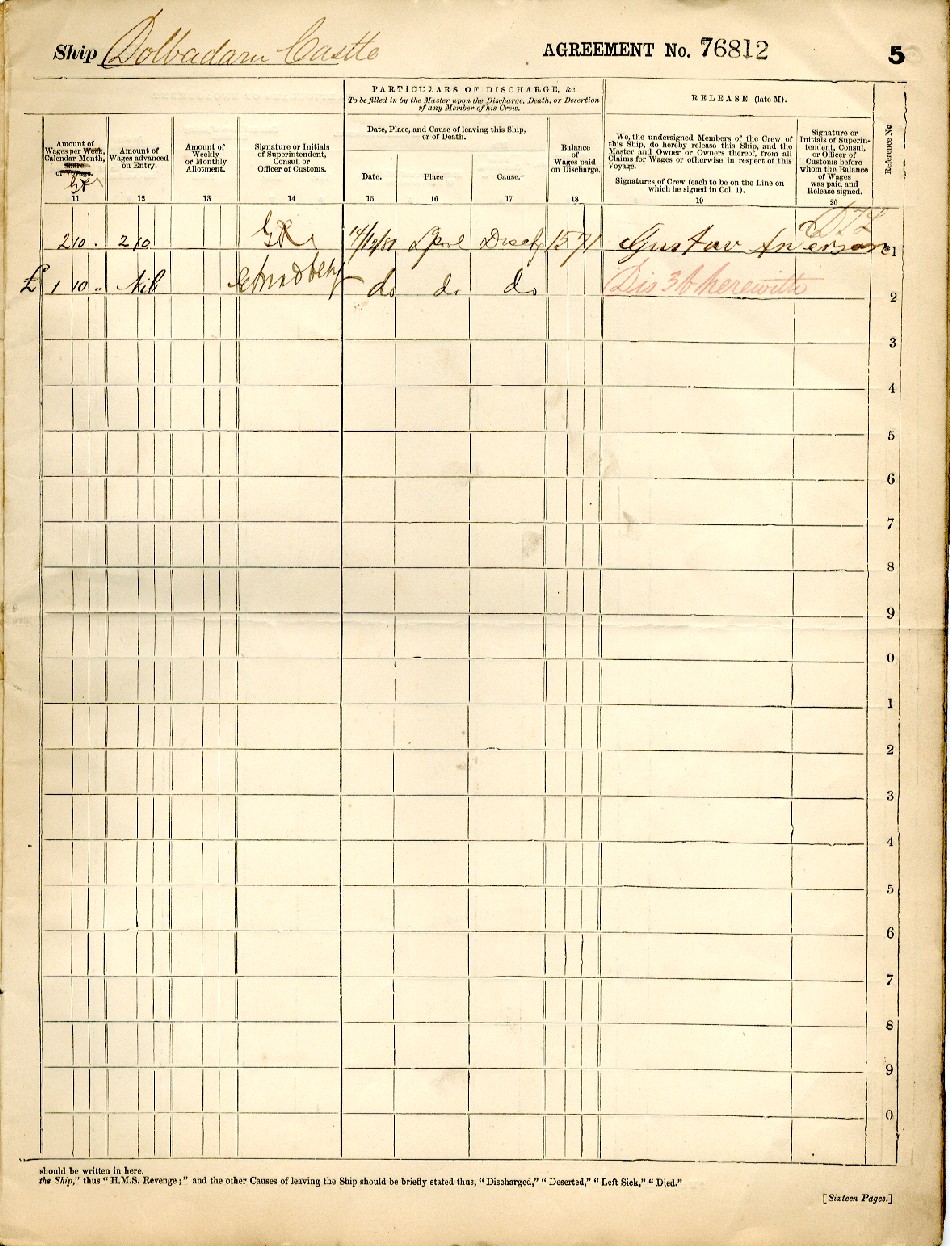 Ship Dolbadarn Castle AGREEMENT No. 76812 5
PARTICULARS OF DISCHARGE, &c.
To be filled in by the Master upon the Discharge, Death, or Desertion
of any Member of his Crew.
RELEASE (late M).
Amount of
Wages per Week,
Calendar Month,
Share
or Voyage.
11
Amount of
Wages advanced
on Entry.
12
Amount of
Weekly
or Monthly
Allotment.
13
Signature or Initials
of Superintendent,
Consul, or
Officer of Customs.
14
Date, Place, and Cause of leaving this Ship,
or of Death.
Date.
15
Place
16
Cause.
17
Balance
of
Wages paid
on Discharge.
18
We, the undersigned Members of the Crew of
this Ship, do hereby release this Ship, and the
Master and Owner or Owners thereof, from all
Claims for Wages or otherwise in respect of this
Voyage.
Signatures of Crew (each to be on the Line on
which he signed in Col 1).
19
Signature or
Initials of Superin-
tendent, Consul,
or Officer of
Customs before
whom the Balance
of Wages
was paid, and
Release signed.
20
Reference No
2 10 . 2 10 Lpool Disch 15 7 1 Gustav 1
£ 1 10 .. Nil do do do Dis 3 herewith 2
3
4
5
6
7
8
9
0
1
2
3
4
5
6
7
8
9
0
should be written in here.
the Ship," thus "H.M.S. Revenge;" and the other Causes of leaving the Ship should be briefly stated thus, "Discharged," "Deserted," "Left Sick," "Died."
[Sixteen Pages.]